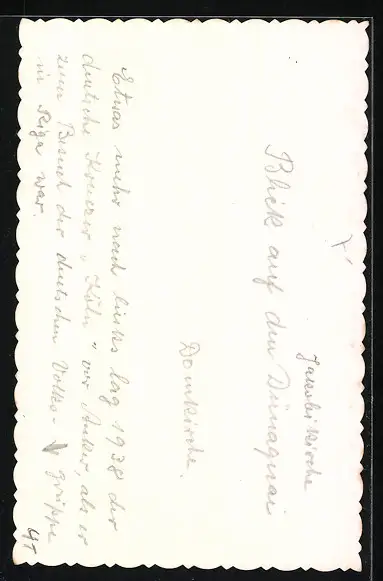 Jakobikirche
Blick auf den Dünaquai
Domkirche.
Etwas mehr nach links lag 1938 der
deutsche Kreuzer „Köln“ vor Anker, als er
zum Besuch der deutschen Volks- gruppe
in Riga war.